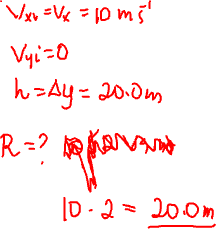 Vxi = Vx = 10 m s⁻¹
Vyi = 0
h = Δy = 20.0 m
R = ?
10 · 2 = 20.0 m